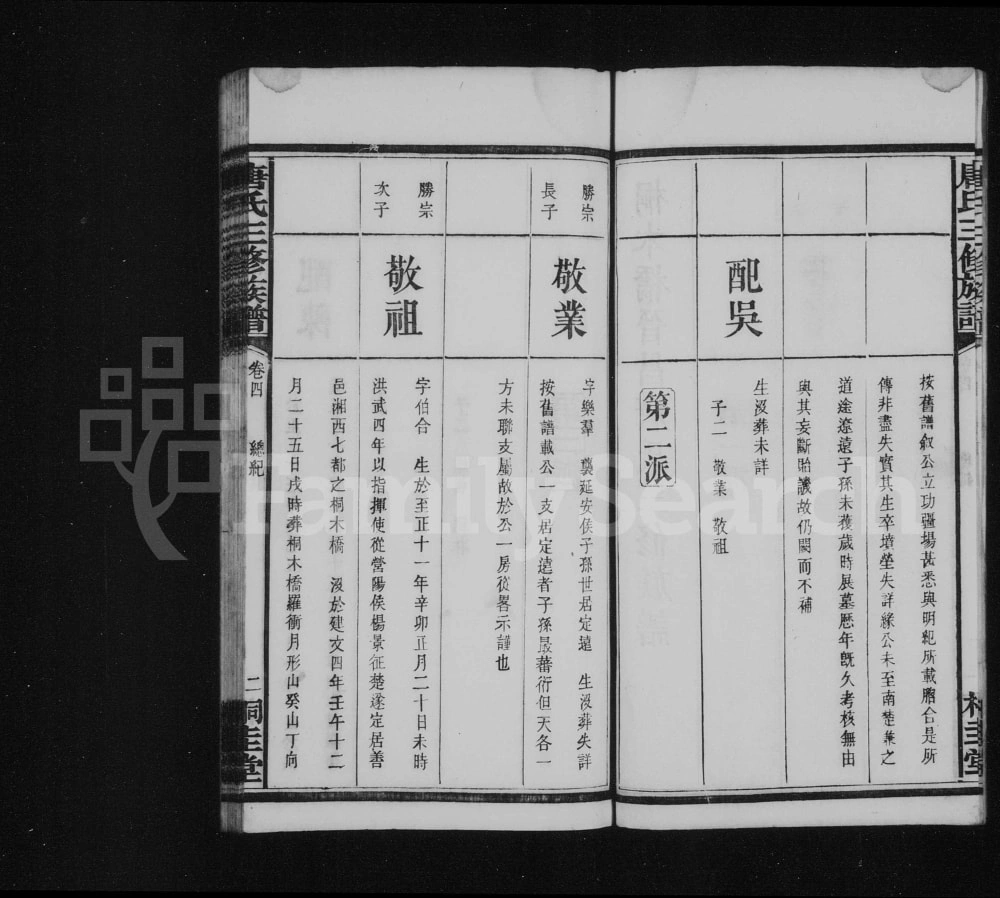 唐氏三修族譜
桐圭堂
按舊譜叙公立功疆場甚悉與明紀所載脗合是所
傳非盡失實其生卒墳塋失詳緣公未至南楚兼之
道途遼遠子孫未獲歲時展墓歷年旣久考核無由
與其妄斷貽譏故仍闕而不補
配吳
生沒葬未詳
子二 敬業 敬祖
第二派
勝宗
長子
敬業
字樂羣 襲延安侯子孫世居定遠 生沒葬失詳
按舊譜載公一支居定遠者子孫最蕃衍但天各一
方未聯支屬故於公一房從畧示謹也
勝宗
次子
敬祖
字伯合 生於至正十一年辛卯正月二十日未時
洪武四年以指揮使從營陽侯楊景征楚遂定居善
邑湘西七都之桐木橋 沒於建文四年壬午十二
月二十五日戌時葬桐木橋羅衝月形山癸山丁向
唐氏三修族譜
卷四 總紀
二
桐圭堂
FamilySearch